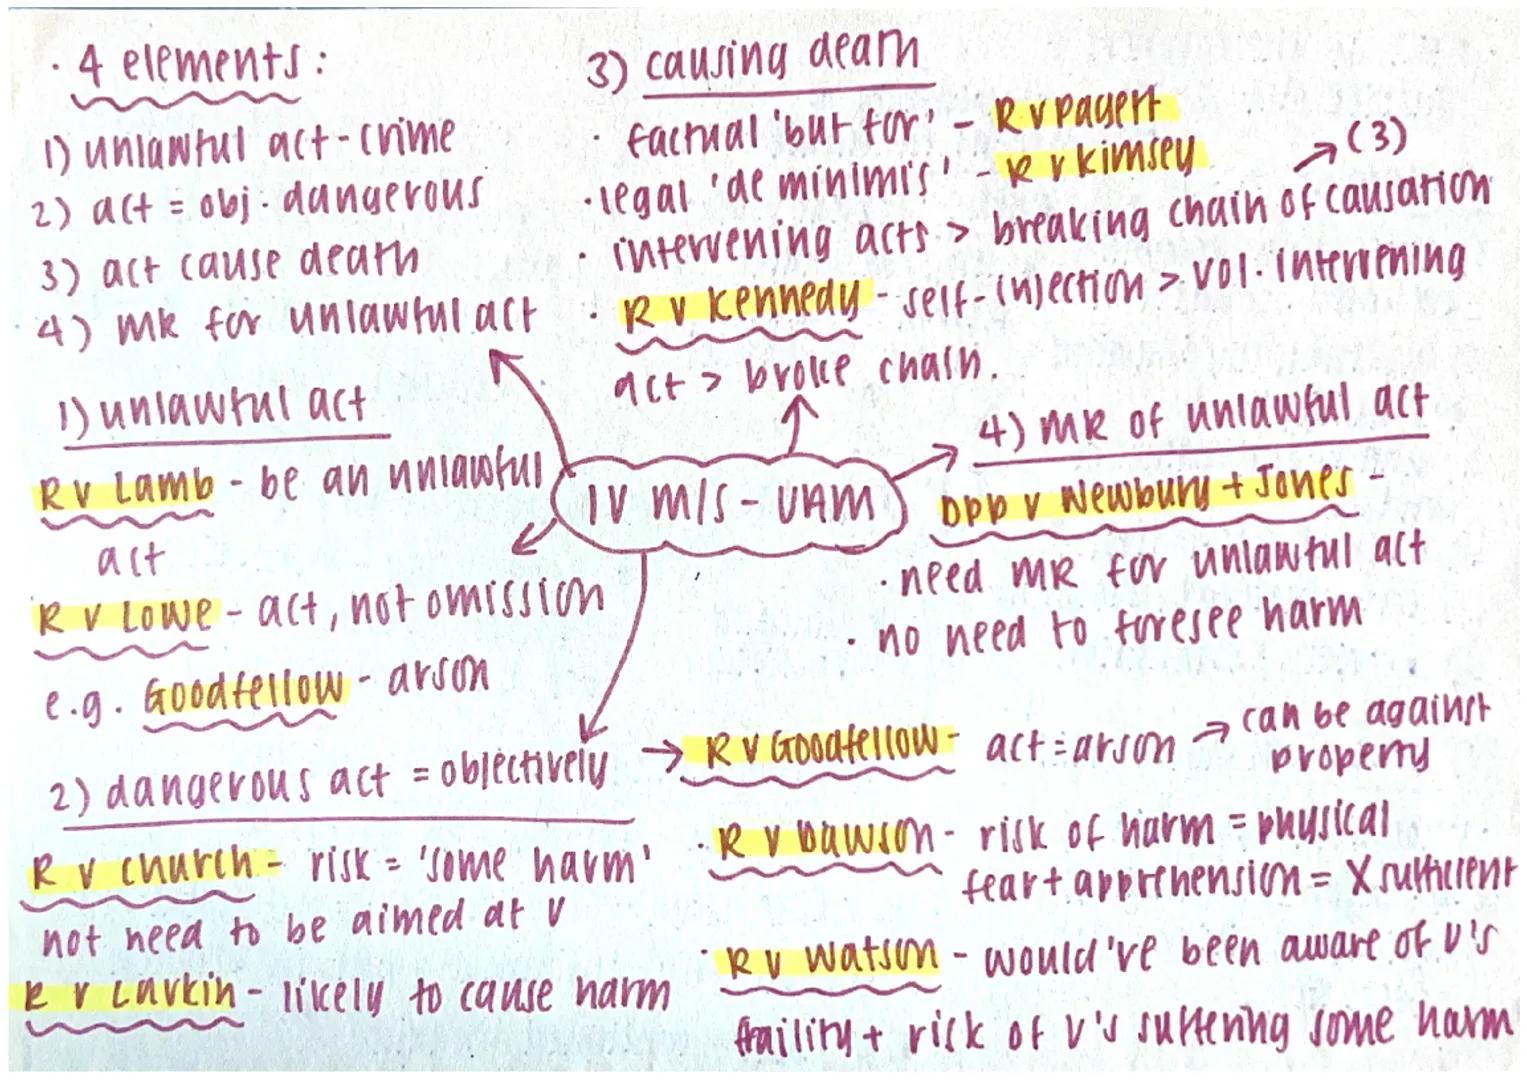 · 4 elements:
1) unlawful act - crime
2) act = obj. dangerous
3) act cause death
4) MR for unlawful act
3) causing death
· factual 'but for' - R v Pagett
· legal 'de minimis' - R v Kimsey
· intervening acts > breaking chain of causation → (3)
· R v Kennedy - self-injection > vol. intervening
act > broke chain.
IV M/S - UAM
1) unlawful act
R v Lamb - be an unlawful
act
R v Lowe - act, not omission
e.g. Goodfellow - arson
4) MR of unlawful act
DPP v Newbury + Jones -
· need MR for unlawful act
· no need to foresee harm
2) dangerous act = objectively
R v Church - risk = 'some harm'
not need to be aimed at V
R v Larkin - likely to cause harm
→ R v Goodfellow - act = arson → can be against
property
· R v Dawson - risk of harm = physical
fear + apprehension = X sufficient
· R v Watson - would've been aware of V's
fraility + risk of V's suffering some harm